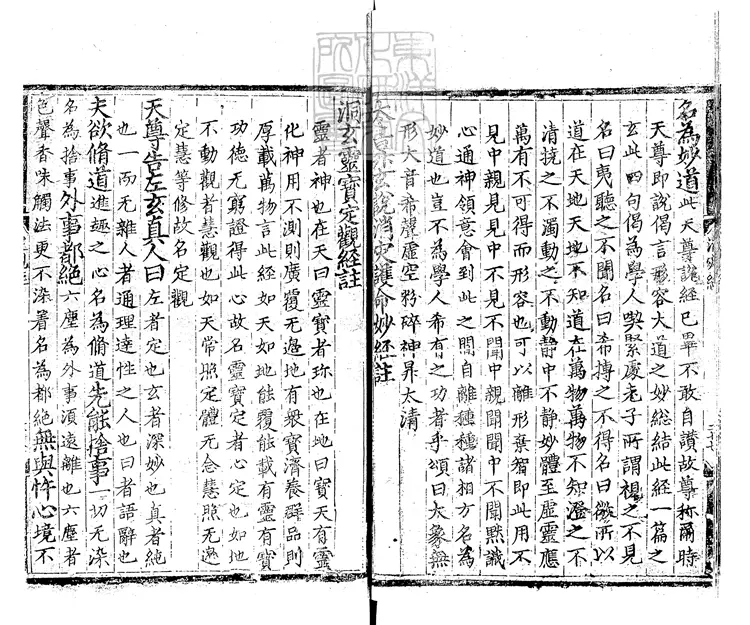 名為妙道此天尊說經已畢不敢自讃故尊称爾時
天尊即說偈言形容大道之妙総結此經一篇之
玄此四句偈為學人喫緊處老子所謂視之不見
名曰夷聽之不聞名曰希摶之不得名曰微所以
道在天地天地不知道在萬物萬物不知澄之不
清撓之不濁動之不動静中不静妙體至虛靈應
萬有不可得而形容也可以離形棄智即此用不
見中親見見中不見不聞中親聞聞中不聞黙識
心通神領意會到此之間自離種種諸相方名為
妙道也豈不為學人希有之功者乎頌曰大象無
形大音希聲虛空粉碎神昇太清
太上昇玄說消災護命妙經註
洞玄靈寶定觀經註
靈者神也在天曰靈寶者珎也在地曰寶天有靈
化神用不測則廣覆无邊地有衆寶濟養群品則
厚載萬物言此經如天如地能覆能載有靈有寶
功德无窮證得此心故名靈寶定者心定也如地
不動觀者慧觀也如天常照定體无念慧照无邊
定慧等修故名定觀
天尊告左玄真人曰左者定也玄者深妙也真者純
也一而无雜人者通理達性之人也曰者語辭也
夫欲脩道進趣之心名為脩道先能捨事一切无染
名為捨事外事都絶六塵為外事須遠離也六塵者
色聲香味觸法更不染着名為都絶無與忤心境不